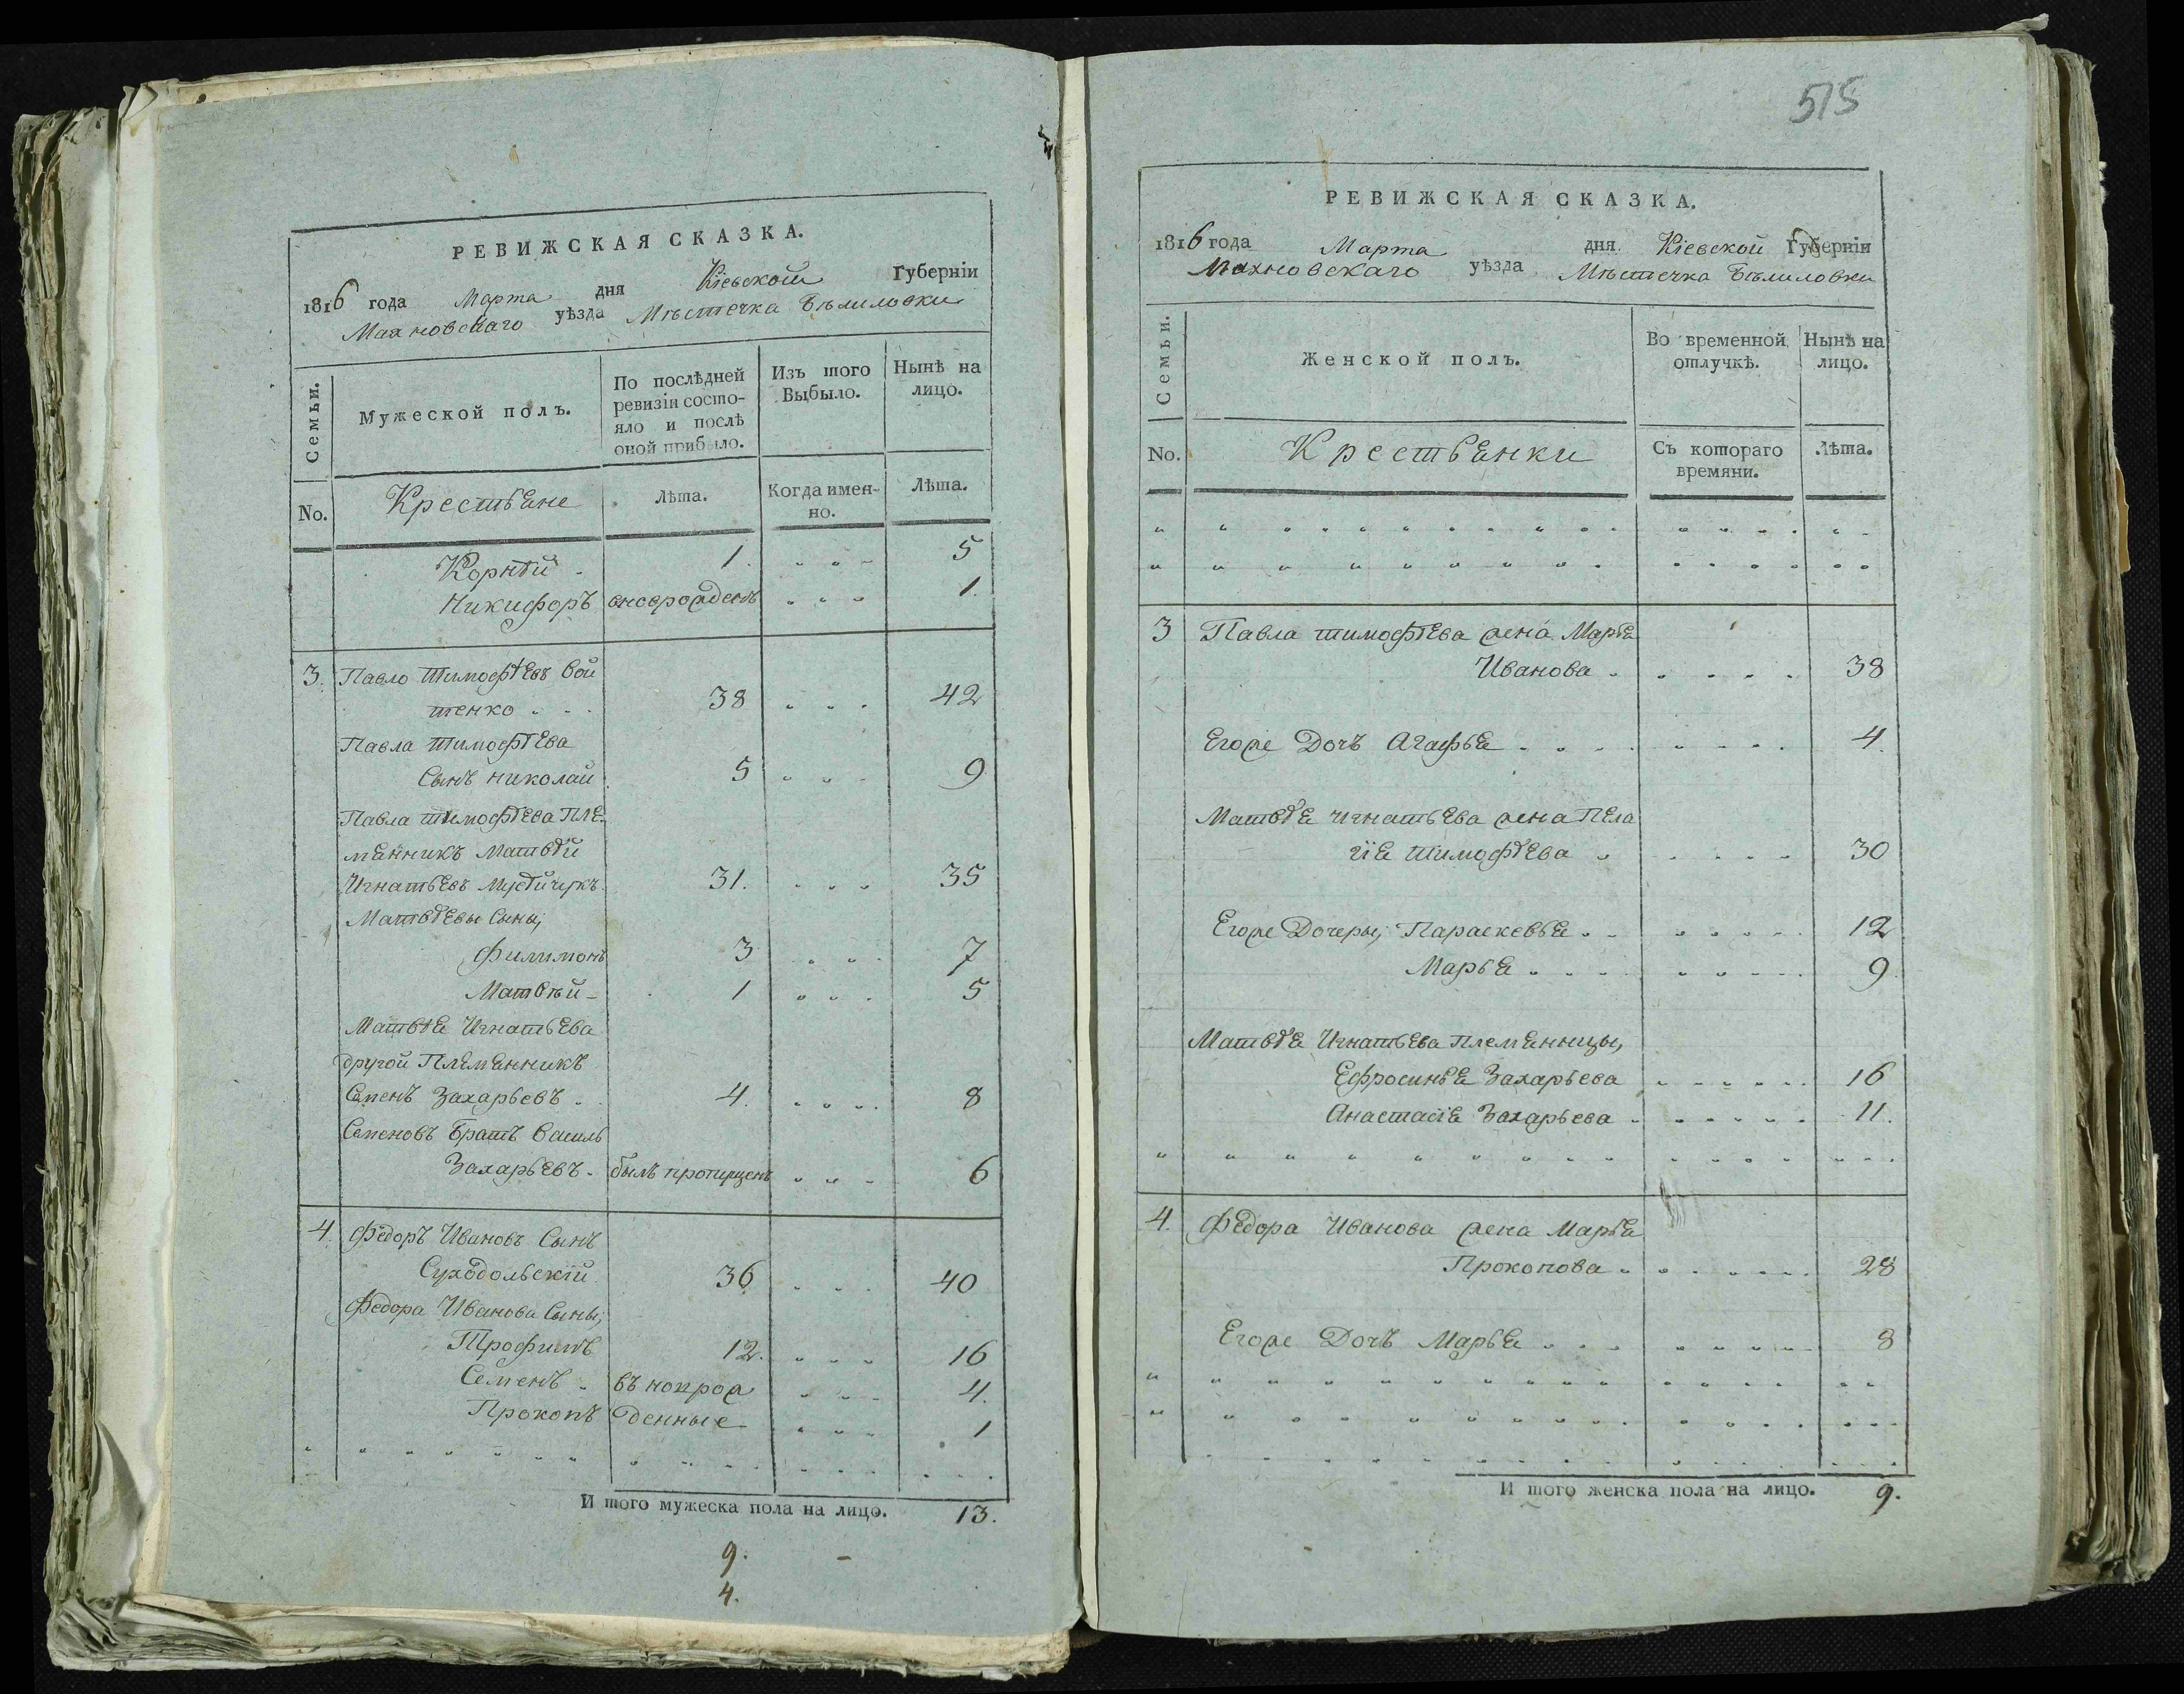 РЕВИЖСКАЯ СКАЗКА.
1816 года Марта дня Кіевской Губерніи
Махновскаго уѣзда Мѣстечка Бѣлиловки
Семьи.
Мужеской полъ.
По послѣдней ревизіи состо-
яло и послѣ
оной прибыло.
Изъ того
Выбыло.
Нынѣ на
лицо.
No.
Крестьяне
Лѣта.
Когда имен-
но.
Лѣта.
Корнѣй 1. 5
Никифоръ 1.
3. Павло Тимофѣевъ Вой
тенко 38 42
Павла Тимофѣева
Сынъ Николай 5 9
Павла Тимофѣева Пле
мянникъ Матвѣй
Игнатьевъ 31. 35
Матвѣевы Сыны;
Филимонъ 3 7
Матвѣй 1 5
Матвѣя Игнатьева
другой Племянникъ
Семенъ Захарьевъ 4. 8
Семеновъ Братъ Василь
Захарьевъ былъ пропущенъ 6
4. Федоръ Ивановъ Сынъ
Суходольскій 36 40
Федора Иванова Сыны;
Трофимъ 12. 16
Семенъ въ новрож 4.
Прокопъ денные 1
И того мужеска пола на лицо. 13.
9.
4.
515
РЕВИЖСКАЯ СКАЗКА.
1816 года Марта дня Кіевской Губерніи
Махновскаго уѣзда Мѣстечка Бѣлиловки
Семьи.
Женской полъ.
Во временной
отлучкѣ.
Нынѣ на
лицо.
No.
Крестьянки
Съ котораго
времяни.
Лѣта.
3 Павла Тимофѣева жена Марья
Иванова 38
Егоже Дочь Агафья 4.
Матвѣя Игнатьева жена Пела
гія Тимофѣева 30
Егоже Дочеры; Параскевья 12
Марья 9.
Матвѣя Игнатьева Племянницы,
Ефросинья Захарьева 16
Анастасія Захарьева 11.
4. Федора Иванова жена Марья
Прокопова 28
Егоже Дочь Марья 8
И того женска пола на лицо. 9.